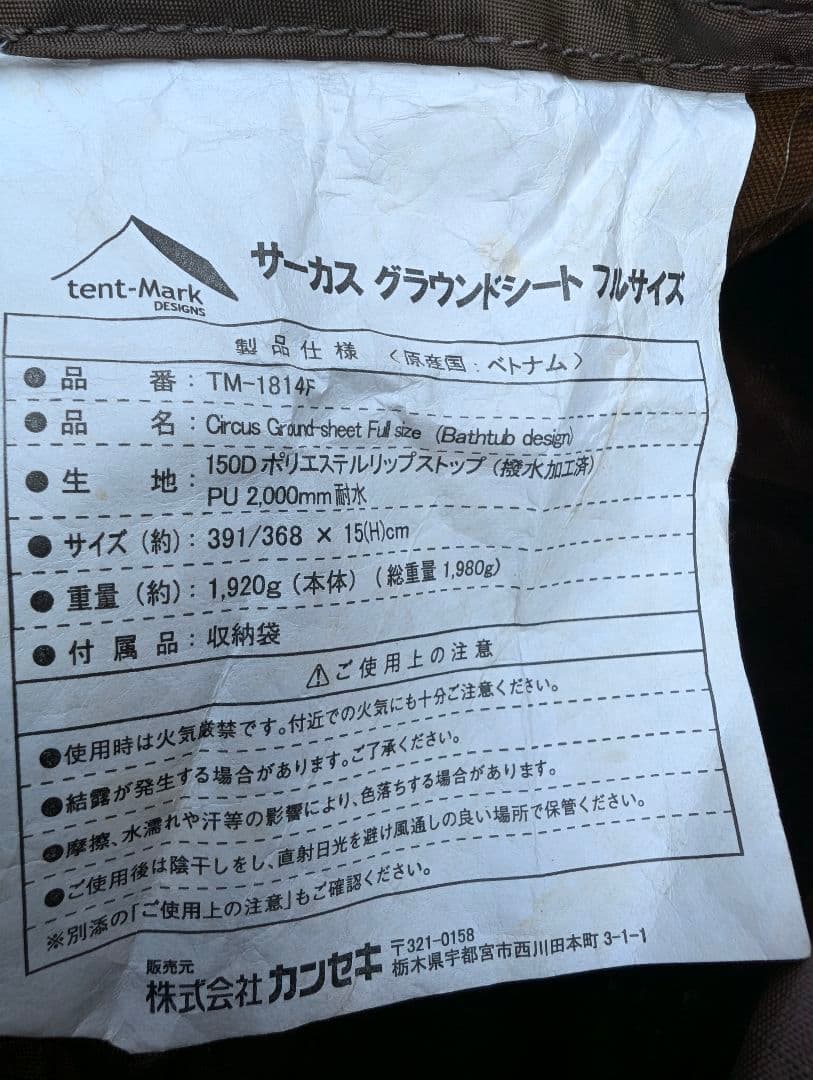 tent-Mark
DESIGNS
サーカス グラウンドシート フルサイズ
製品仕様 〈原産国：ベトナム〉
●品 番：TM-1814F
●品 名：Circus Ground-sheet Full size (Bathtub design)
●生 地：150Dポリエステルリップストップ（撥水加工済）
PU 2,000mm耐水
●サイズ（約）：391/368 × 15(H)cm
●重量（約）：1,920g（本体）（総重量 1,980g）
●付属品：収納袋
⚠ご使用上の注意
●使用時は火気厳禁です。付近での火気にも十分ご注意ください。
●結露が発生する場合があります。ご了承ください。
●摩擦、水濡れや汗等の影響により、色落ちする場合があります。
●ご使用後は陰干しをし、直射日光を避け風通しの良い場所で保管ください。
※別添の「ご使用上の注意」もご確認ください。
販売元
株式会社 カンセキ
〒321-0158
栃木県宇都宮市西川田本町 3-1-1